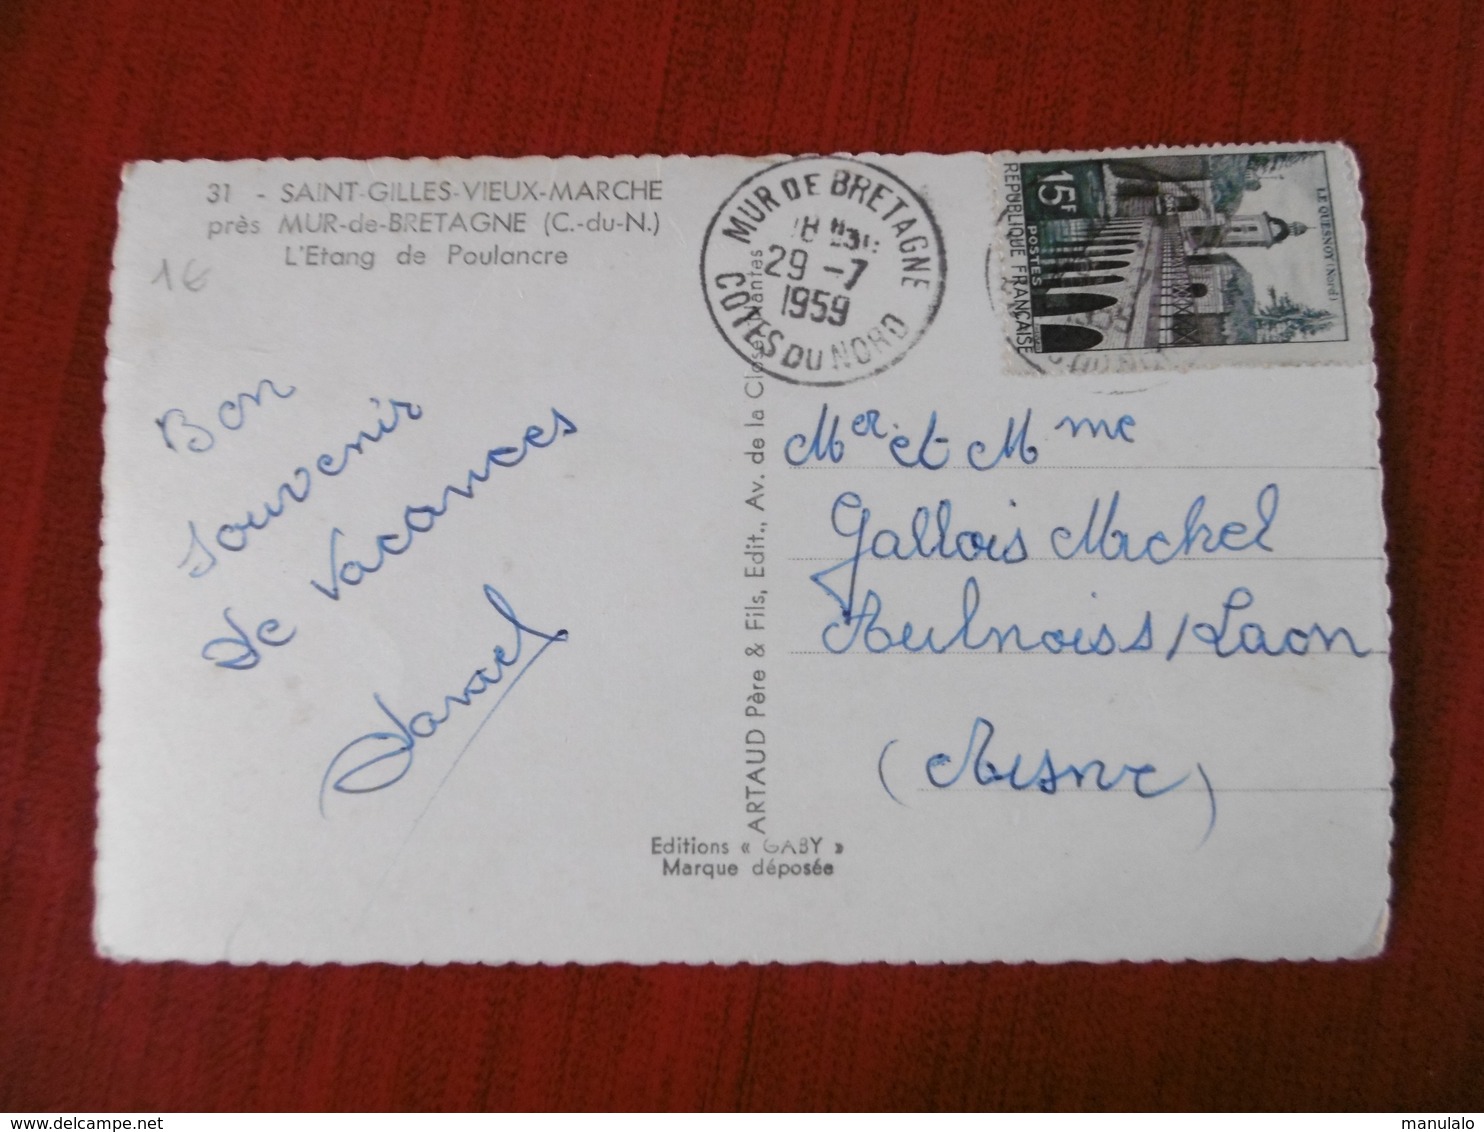 31 - SAINT-GILLES-VIEUX-MARCHE
près MUR-de-BRETAGNE (C.-du-N.)
L'Etang de Poulancre
1€
Bon
souvenir
de Vacances
Daniel
MUR DE BRETAGNE
29 -7
1959
COTES DU NORD
15F
POSTES
REPUBLIQUE FRANÇAISE
LE QUESNOY (Nord)
ARTAUD Père & Fils, Edit., Av. de la Close, Nantes
Mer et Mme
Gallois Michel
Aulnois s/Laon
(Aisne)
Editions « GABY »
Marque déposée
delcampe.net
manulalo